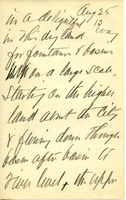 Aug 25
13
in a delightful way
in this dry land
for fountains & basins
on a large scale,
starting on the higher
land about the City
& flowing down through
basin after basin to
river level, & the upper